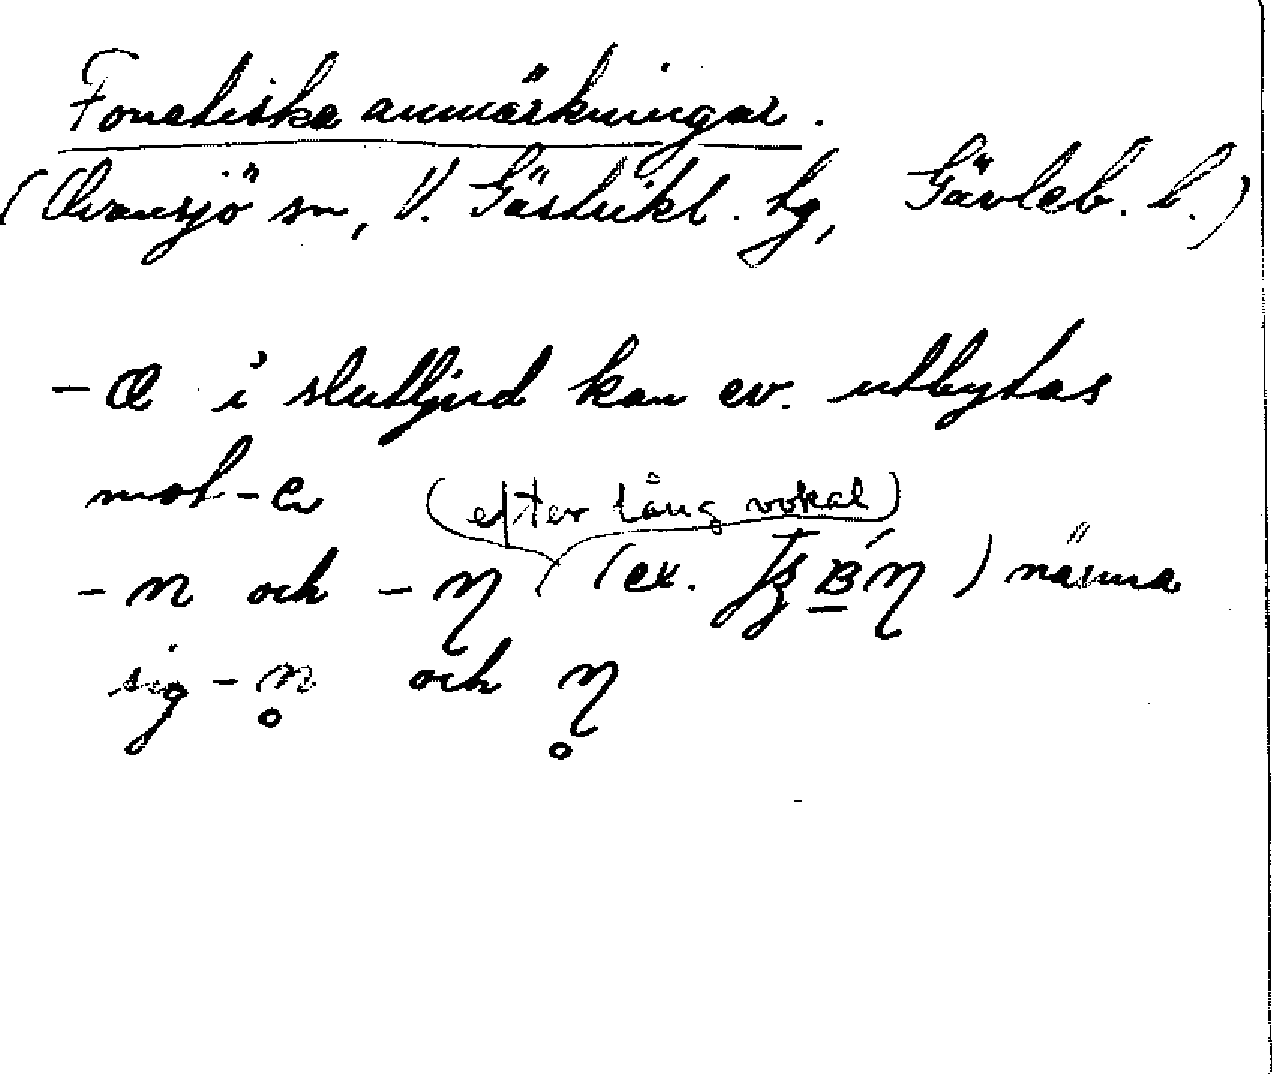 Fonetiska anmärkningar.
(Ovansjö sn, V. Gästrikl. tg, Gävleb. l.)
- a i slutljud kan ev. utbytas
mot - e
(efter lång vokal)
- n och - ŋ (ex. ) närma
sig - n̥ och ŋ̊